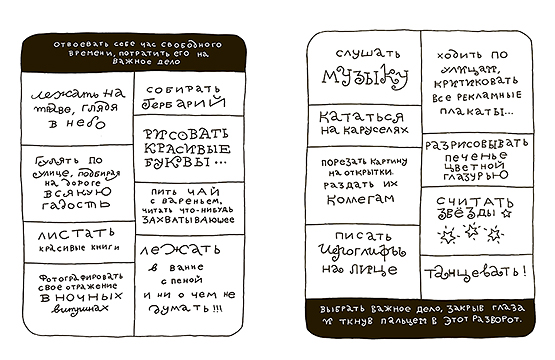 отвоевать себе час свободного
времени, потратить его на
важное дело
лежать на
траве, глядя
в небо
гулять по
улице, подбирая
на дороге
всякую
гадость
листать
красивые книги
фотографировать
свое отражение
в ночных
витринах
собирать
гербарий
рисовать
красивые
буквы...
пить чай
с вареньем,
читать что-нибудь
захватывающее
лежать
в ванне
с пеной
и ни о чем не
думать!!!
слушать
музыку
кататься
на каруселях
порезать картину
на открытки,
раздать их
коллегам
писать
иероглифы
на лице
ходить по
улицам,
критиковать
все рекламные
плакаты...
разрисовывать
печенье
цветной
глазурью
считать
звёзды
танцевать!
выбрать важное дело, закрыв глаза
и ткнув пальцем в этот разворот.